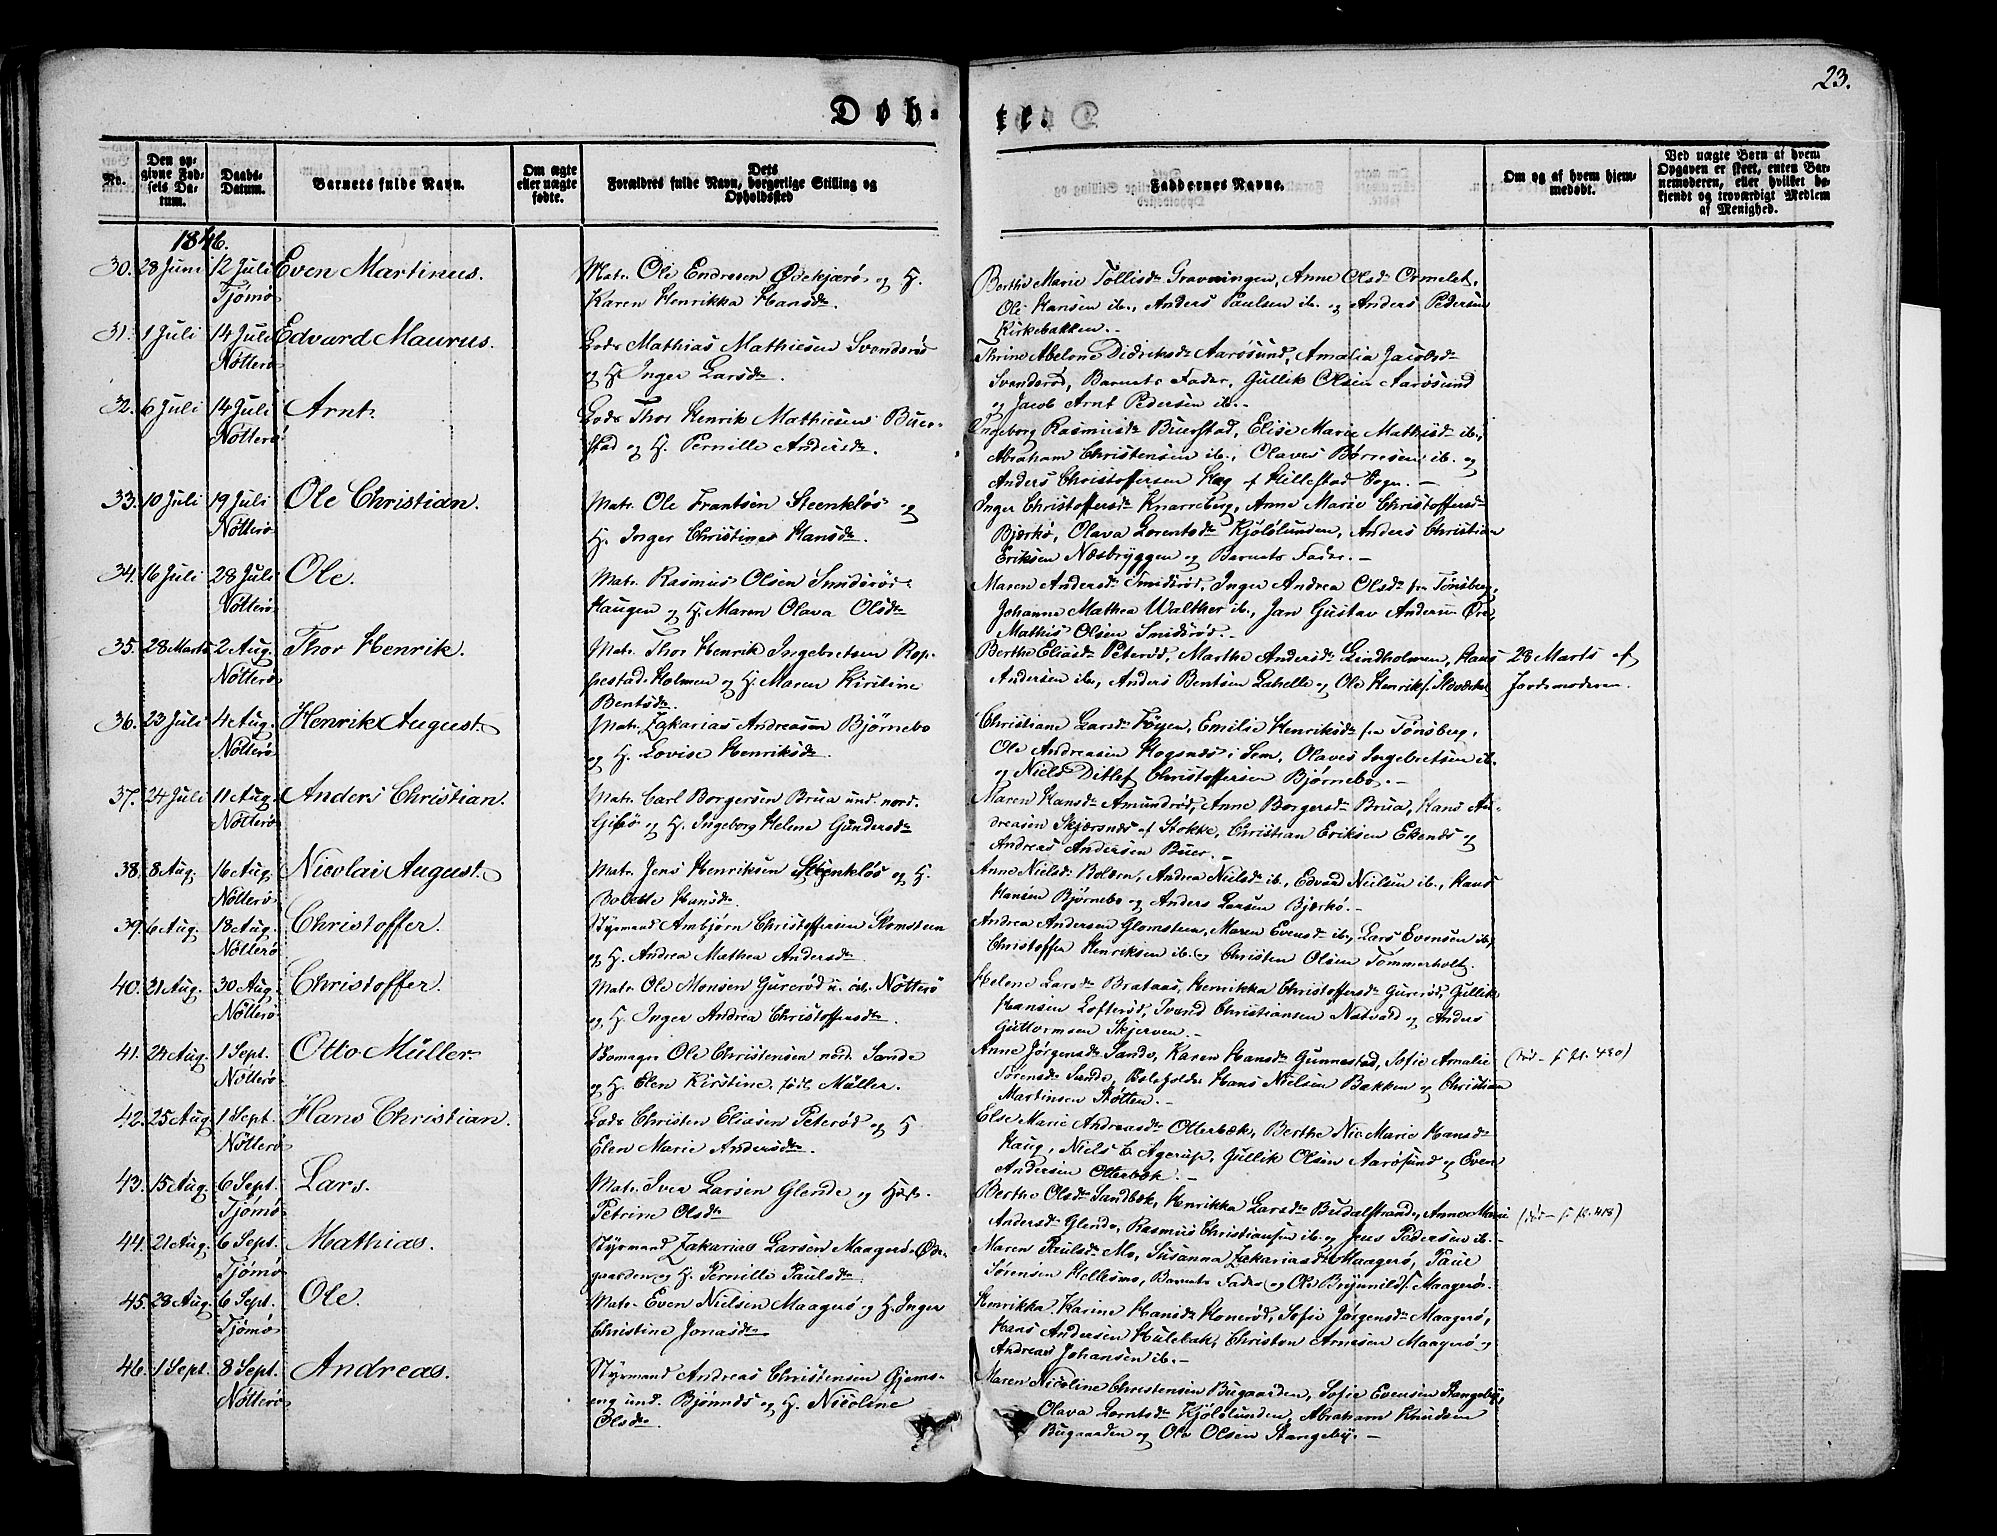 23.
Døb-
te.
No.
Den op-
givne Fød-
sels Da-
tum.
Daabs-
Datum.
Barnets fulde Navn.
Om ægte
eller uægte
fødte.
Dets
Forældres fulde Navn, borgerlige Stilling og
Opholdssted
Faddernes Navne.
Om og af hvem hjem-
medøbt.
Ved uægte Børn af hvem
Opgaven er skeet, enten Bar-
nemoderen, eller hvilket be-
kjendt og troværdigt Medlem
af Menighed.
1846.
30. 28 Juni 12 Juli Even Martinus.
Tjømø
Matr. Ole Endresen Ødekjære og H.
Karen Henrikka Hansdr.
Berthe Marie Tollisdr Gravningen, Anne Olsdr Ormelet,
Ole Hansen ib., Anders Paulsen ib. og Anders Pedersen
Kirkebakken.
31. 1 Juli 14 Juli Edvard Maurus.
Nøtterø
Lods Mathias Mathiesen Svenderø
og H. Inger Larsdr.
Thrine Abelone Didriksdr Aarøsund, Amalia Jacobsdr
Svenderød, Barnets Fader, Gullik Olsen Aarøsund
og Jacob Arnt Pedersen ib.
32. 6 Juli 14 Juli Arnt.
Nøtterø
Lods Thor Henrik Mathiesen Buer-
stad og H. Pernille Andersdr.
Ingeborg Rasmusdr Buerstad, Elise Marie Mathisdr ib.,
Abraham Christensen ib., Olaves Børresen ib. og
Anders Christoffersen Høg af Hillestad Sogn.
33. 10 Juli 19 Juli Ole Christian.
Nøtterø
Matr. Ole Frantsen Steenkløs og
H. Inger Christine Hansdr.
Inger Christoffersdr Knarreberg, Anne Marie Christoffersdr
Bjerkø, Olava Lorentsdr Kjølslunden, Anders Christian
Eriksen Næsbryggen og Barnets Fader.
34. 16 Juli 28 Juli Ole.
Nøtterø
Matr. Rasmus Olsen Smidsrød
Haugen og H. Maren Olava Olsdr
Maren Andersdr Smidsrød, Inger Andrea Olsdr fra Tønsberg,
Johanne Mathea Walther ib., Jan Gustav Andersen Øre,
Mathis Olsen Smidsrød.
35. 28 Marts 2 Aug. Thor Henrik.
Nøtterø
Matr. Thor Henrik Ingebretsen Rop-
pestad Holmen og H. Maren Kirstine
Bentsdr.
Berthe Eliasdr Peterød, Marthe Andersdr Lindholmen, Hans
Andersen ib., Anders Bentsen Labelle og Ole Henriks.
28 Marts af
Jordemoderen.
36. 23 Juli 4 Aug. Henrik August.
Nøtterø
Matr. Zakarias Andreasen Bjørnebo
og H. Lovise Henriksdr.
Christiane Larsdr Føyen, Emilie Henriksdr fra Tønsberg,
Ole Andreasen Hogsnæs i Sem, Olaves Ingebretsen ib.
og Niels Ditlef Christoffersen Bjørnebo.
37. 24 Juli 11 Aug. Anders Christian.
Nøtterø
Matr. Carl Borgersen Brua und. nord.
Gibø og H. Ingeborg Helene Gundersdr
Maren Hansdr Amundrød, Anne Borgersdr Brua, Hans An-
dreasen Skjærsnæs af Stokke, Christian Eriksen Ekenæs og
Andreas Andersen Buer.
38. 8 Aug. 16 Aug. Nicolai August.
Nøtterø
Matr. Jens Henriksen Steenkløs og H.
Bolette Hansdr.
Anne Nielsdr Bolæren, Andrea Nielsdr ib., Edvard Nielsen ib., Hans
Hansen Bjørnebo og Anders Larsen Bjerkø.
39. 6 Aug. 18 Aug. Christoffer.
Nøtterø
Styrmand Ambjørn Christoffersen Glomsteen
og H. Andrea Mathea Andersdr.
Andrea Andersen Glomsteen, Maren Evensdr ib., Lars Evensen ib.,
Christoffer Henriksen ib. og Christen Olsen Tømmerholt.
40. 21 Aug. 30 Aug. Christoffer.
Nøtterø
Matr. Ole Monsen Gurerød u. øst. Nøtterø
og H. Inger Andrea Christoffersdr.
Helene Larsdr Brataas, Henrikka Christoffersdr Gurerød, Gullik
Hansen Lofterød, Svend Christiansen Natvald og Anders
Guttormsen Skjerven.
41. 24 Aug. 1 Sept. Otto Müller
Nøtterø
Skomager Ole Christensen nord. Sande
og H. Elen Kirstine, født Müller.
Anne Jørgensdr Sande, Karen Hansdr Gunnestad, Sofie Amalie
Sørensdr Sande, Hans Nielsen Bakken og Christian
Martinsen Støtten.
42. 25 Aug 1 Sept. Hans Christian.
Nøtterø
Lods Christen Eliasen Peterød og H.
Elen Marie Andersdr.
Else Marie Andreasdr Otterbæk, Berthe Nic Marie Hansdr
Haug, Niels B. Agerup, Gullik Olsen Aarøsund og Even
Andersen Otterbæk.
43. 15 Aug. 6 Sept. Lars.
Tjømø
Matr. Iver Larsen Glende og H.
Petrine Olsdr
Berthe Olsdr Sandbæk, Henrikka Larsdr Budalstrand, Anne Marie
Andersdr Glende, Rasmus Christiansen ib. og Jens Pedersen ib.
44. 21 Aug. 6 Sept. Mathias.
Tjømø
Styrmand Zakarias Larsen Maagerø Øde-
gaarden og H. Pernille Paulsdr
Maren Paulsdr Mo, Susanna Zakariasdr Maagerø, Paul
Sørensen Hellesmo, Barnets Fader og Ole Brynnilds. Maagerø.
45. 28 Aug. 6 Sept. Ole.
Tjømø
Matr. Even Nielsen Maagerø og H. Inger
Christine Jonasdr
Henrikka Karine Hansdr Honerød, Sofie Jørgensdr Maagerø,
Hans Andersen Hulebak, Christen Arnesen Maagerø og
Andreas Johansen ib.
46. 1 Sept. 8 Sept. Andreas.
Nøtterø
Styrmand Andreas Christensen Gjems-
eng und. Bjønnes og H. Nicoline
Olsdr.
Maren Nicoline Christensen Bugaarden, Sofie Evensen Stangeby,
Olava Lorntsdr Kjølslunden, Abraham Knudsen
Bugaarden og Ole Olsen Stangeby.